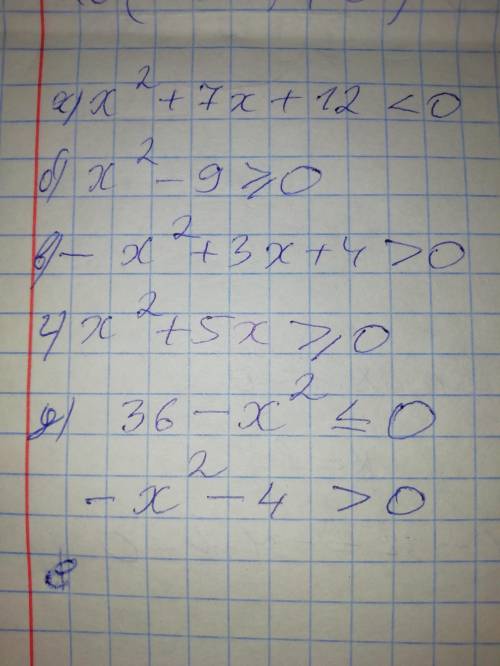 а) x² + 7x + 12 < 0
б) x² - 9 ⩾ 0
в) - x² + 3x + 4 > 0
г) x² + 5x ⩾ 0
д) 36 - x² ≤ 0
- x² - 4 > 0